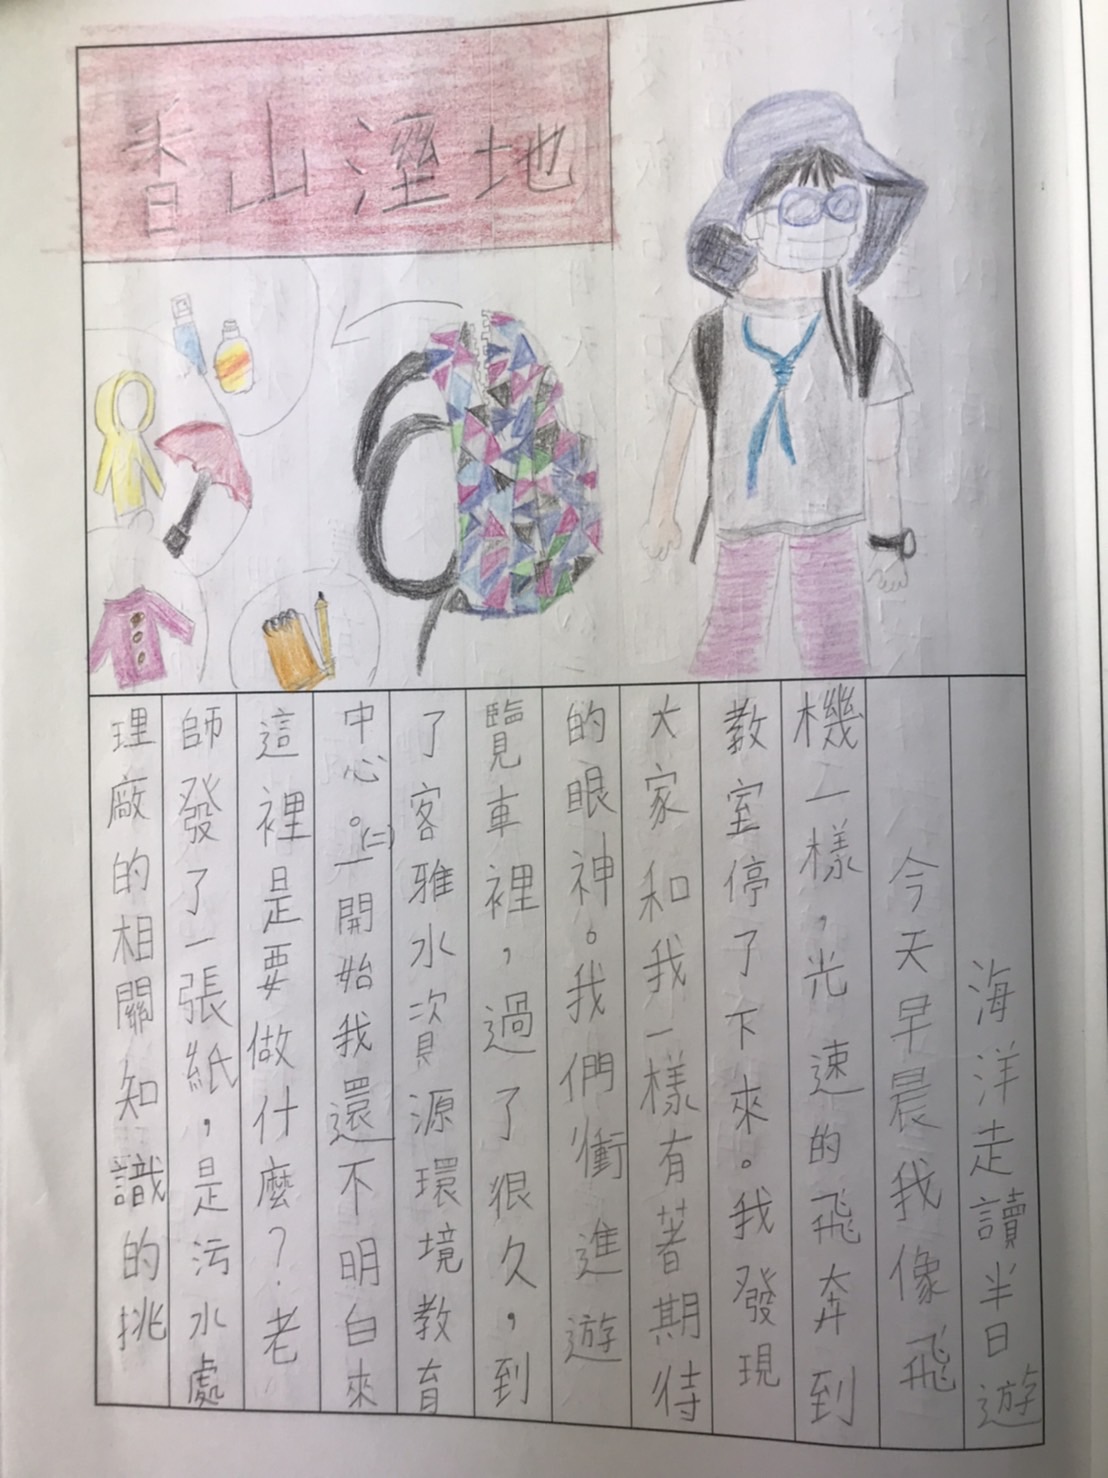 香山溼地
海洋走讀半日遊
今天早晨我像飛
機一樣，光速的飛奔到
教室停了下來。我發現
大家和我一樣有著期待
的眼神。我們衝進遊
覽車裡，過了很久，到
了客雅水資源環境教育
中心。(二)一開始我還不明白來
這裡是要做什麼？老
師發了一張紙，是污水處
理廠的相關知識的挑